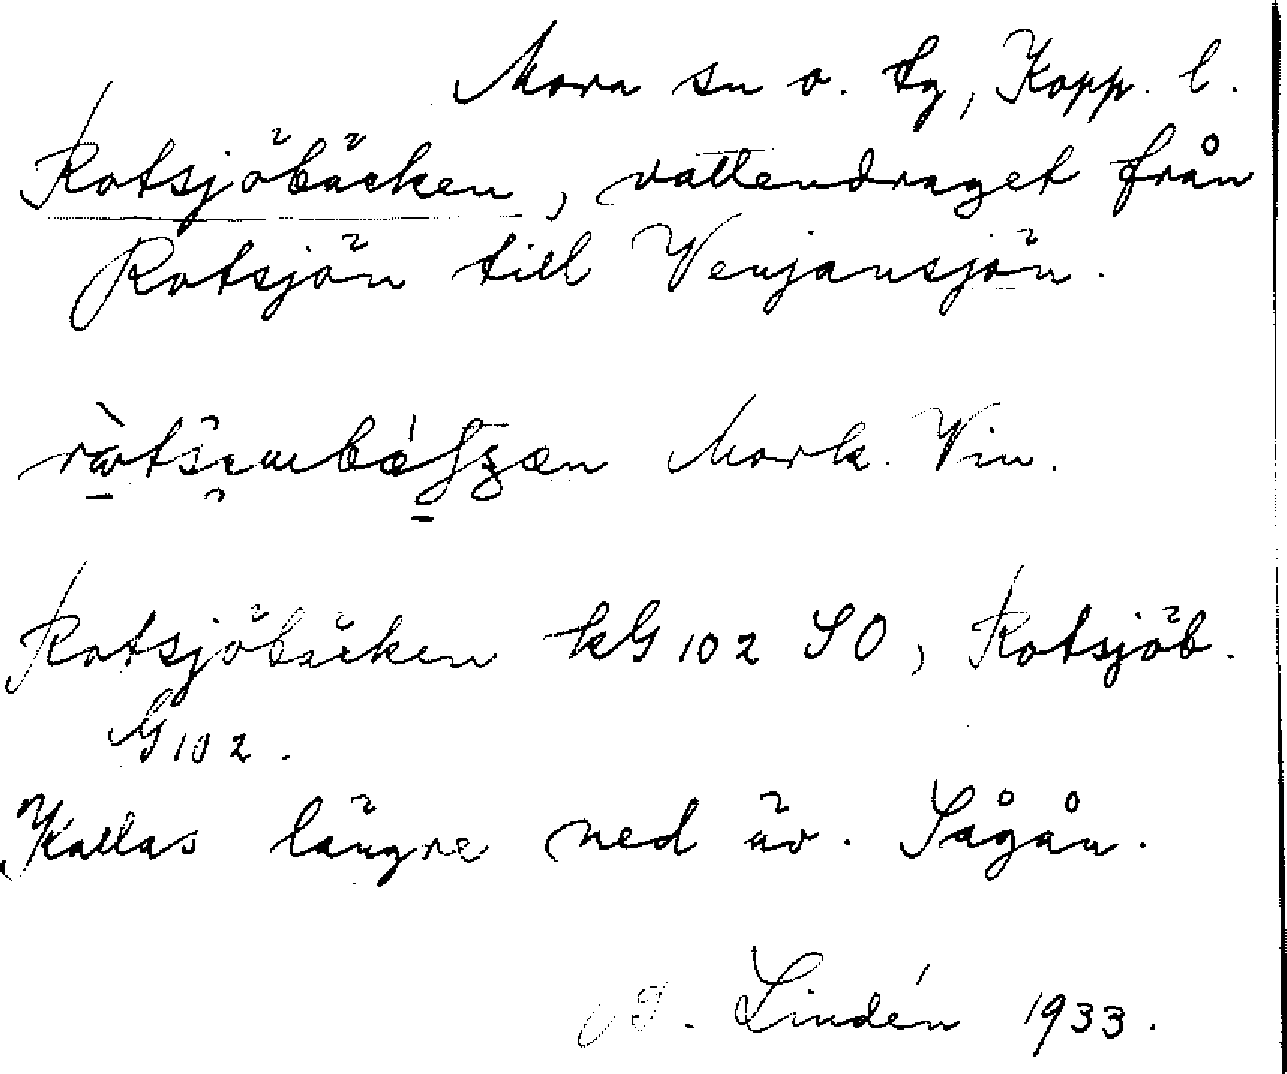 Mora sn o. tg, Kopp. l.
Rotsjöbäcken, vattendraget från
Rotsjön till Venjansjön.
Mork. Vin.
Rotsjöbäcken kG 102 SO, Rotsjöb.
G 102.
Kallas längre ned äv. Sågån.
Lindén 1933.